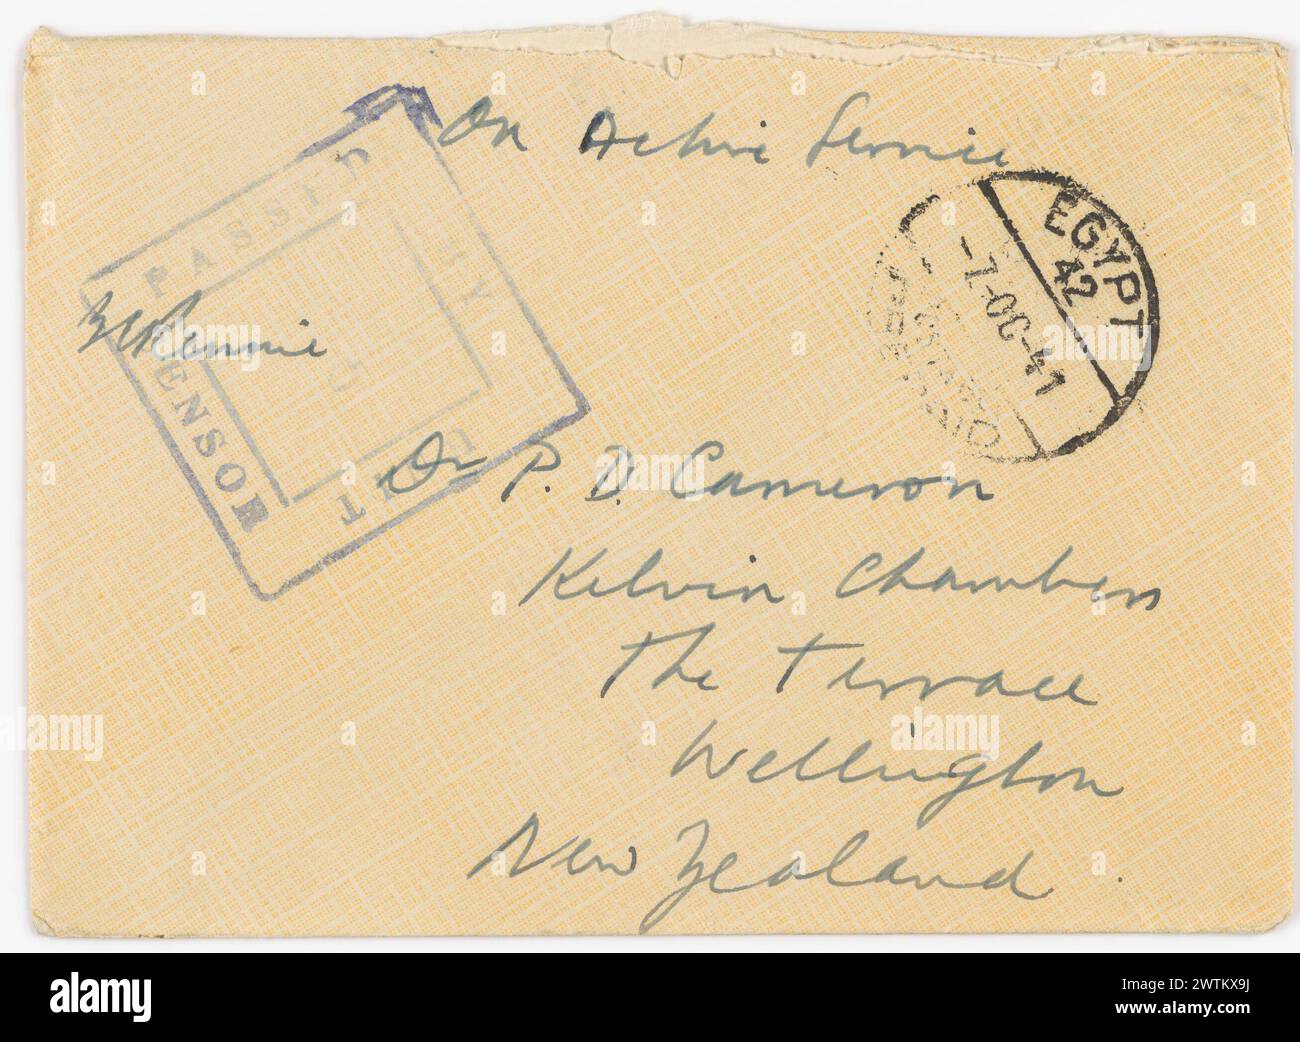 On Active Service
PASSED BY
UNIT
CENSOR
Rennie
EGYPT
42
-7-OC-41
Dr P. D. Cameron
Kelvin Chambers
The Terrace
Wellington
New Zealand.
alamy
alamy
Image ID: 2WTKX9J
www.alamy.com